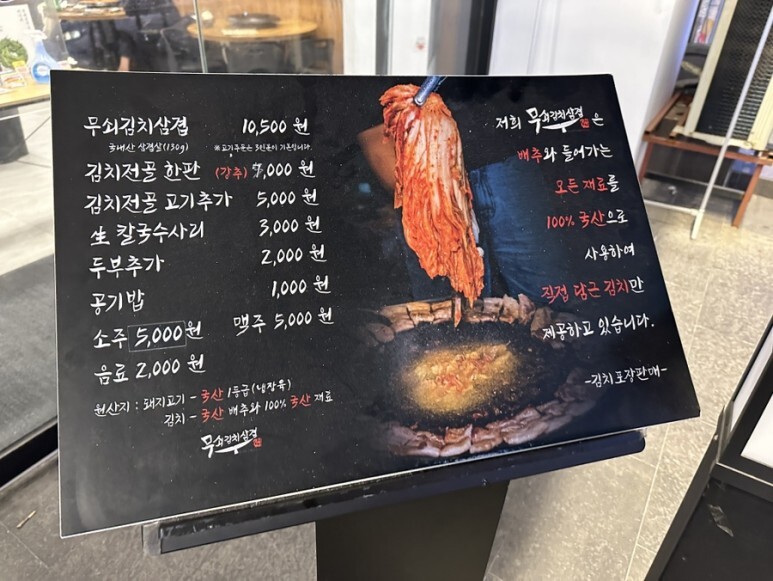 무쇠김치삼겹 10,500 원
국내산 삼겹살(150g) ※고기주문은 3인분이 기본입니다.
김치전골 한판 (강추) ,000 원
김치전골 고기추가 5,000 원
生 칼국수사리 3,000 원
두부추가 2,000 원
공기밥 1,000 원
소주 5,000원 맥주 5,000 원
음료 2,000 원
원산지 : 돼지고기 - 국산 1등급 (냉장육)
김치 - 국산 배추와 100% 국산 재료
무쇠김치삼겹
저희 무쇠김치삼겹 은
배추와 들어가는
모든 재료를
100% 국산으로
사용하여
직접 담근 김치만
제공하고 있습니다.
-김치 포장판매-